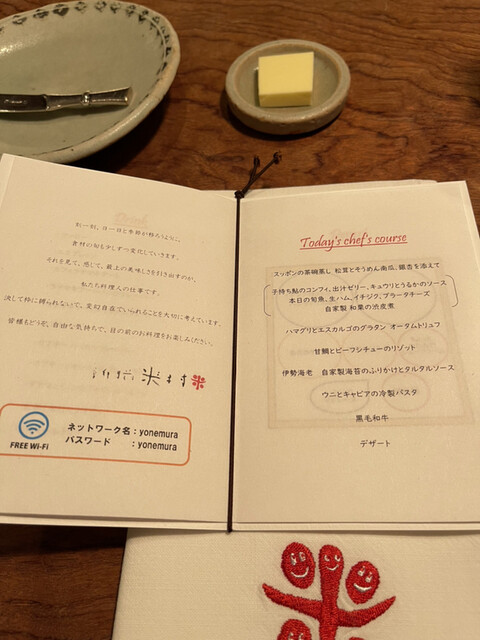 刻一刻、日一日と季節が移ろうように、
食材の旬も少しずつ変化していきます。
それを見て、感じて、最上の美味しさを引き出すのが、
私たち料理人の仕事です。
決して枠に縛られないで、変幻自在でいられることを大切に考えています。
皆様もどうぞ、自由な気持ちで、目の前のお料理をお楽しみください。
米村
FREE Wi-Fi
ネットワーク名：yonemura
パスワード　　：yonemura
Today's chef's course
スッポンの茶碗蒸し 松茸とそうめん南瓜、銀杏を添えて
子持ち鮎のコンフィ、出汁ゼリー、キュウリとうるかのソース
本日の旬魚、生ハム、イチジク、ブラータチーズ
自家製 和栗の渋皮煮
ハマグリとエスカルゴのグラタン オータムトリュフ
甘鯛とビーフシチューのリゾット
伊勢海老　自家製海苔のふりかけとタルタルソース
ウニとキャビアの冷製パスタ
黒毛和牛
デザート